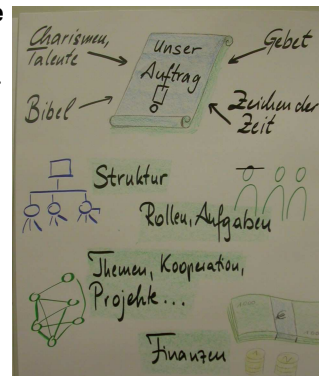 Charismen,
Talente
Bibel
Unser
Auftrag
!
Gebet
Zeichen der
Zeit
Struktur
Rollen, Aufgaben
Themen, Kooperation,
Projekte...
€
Finanzen